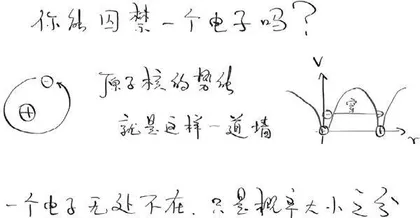 你能囚禁一个电子吗?
原子核的势能
就是这样一道墙
V
r
一个电子无处不在.只是概率大小之分